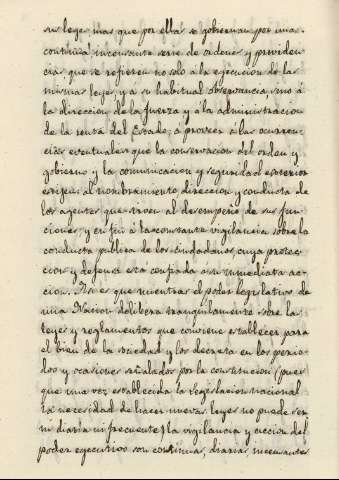 su leyes mas que por ellas se gobiernan por una
continua incensante serie de ordenes y providen
cias que se refieren no solo à la ejecucion de las
mismas leyes y a su habitual observancia, sino á
la direccion de la fuerza y à la administracion
de la renta del Estado, á proveer à las ocurren
cias eventuales que la conservacion del orden y
gobierno y la comunicacion y seguridad exterior
exijen: al nombramiento direccion y conducta de
los agentes que sirven al desempeño de sus fun
ciones; y en fin à la constante vigilancia sobre la
conducta publica de los ciudadanos, cuya protec
cion y defensa esta confiada a su inmediata ac
cion. Asi es que mientras el poder legislativo de
una Nacion delibera tranquilamente sobre las
leyes y reglamentos que conviene establecer para
el bien de la sociedad y los decreta en los perio-
dos y ocasiones señalados por la constitucion (pues
que una vez establecida la legislacion nacional
la necesidad de hacer nuevas leyes no puede ser
ni diaria ni frecuente) la vigilancia y accion del
poder ejecutivo son continuas, diarias, incesantes